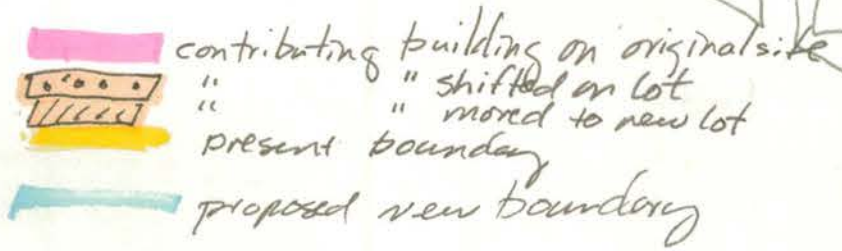 contributing building on original site
" " shifted on lot
" " moved to new lot
present boundary
proposed new boundary